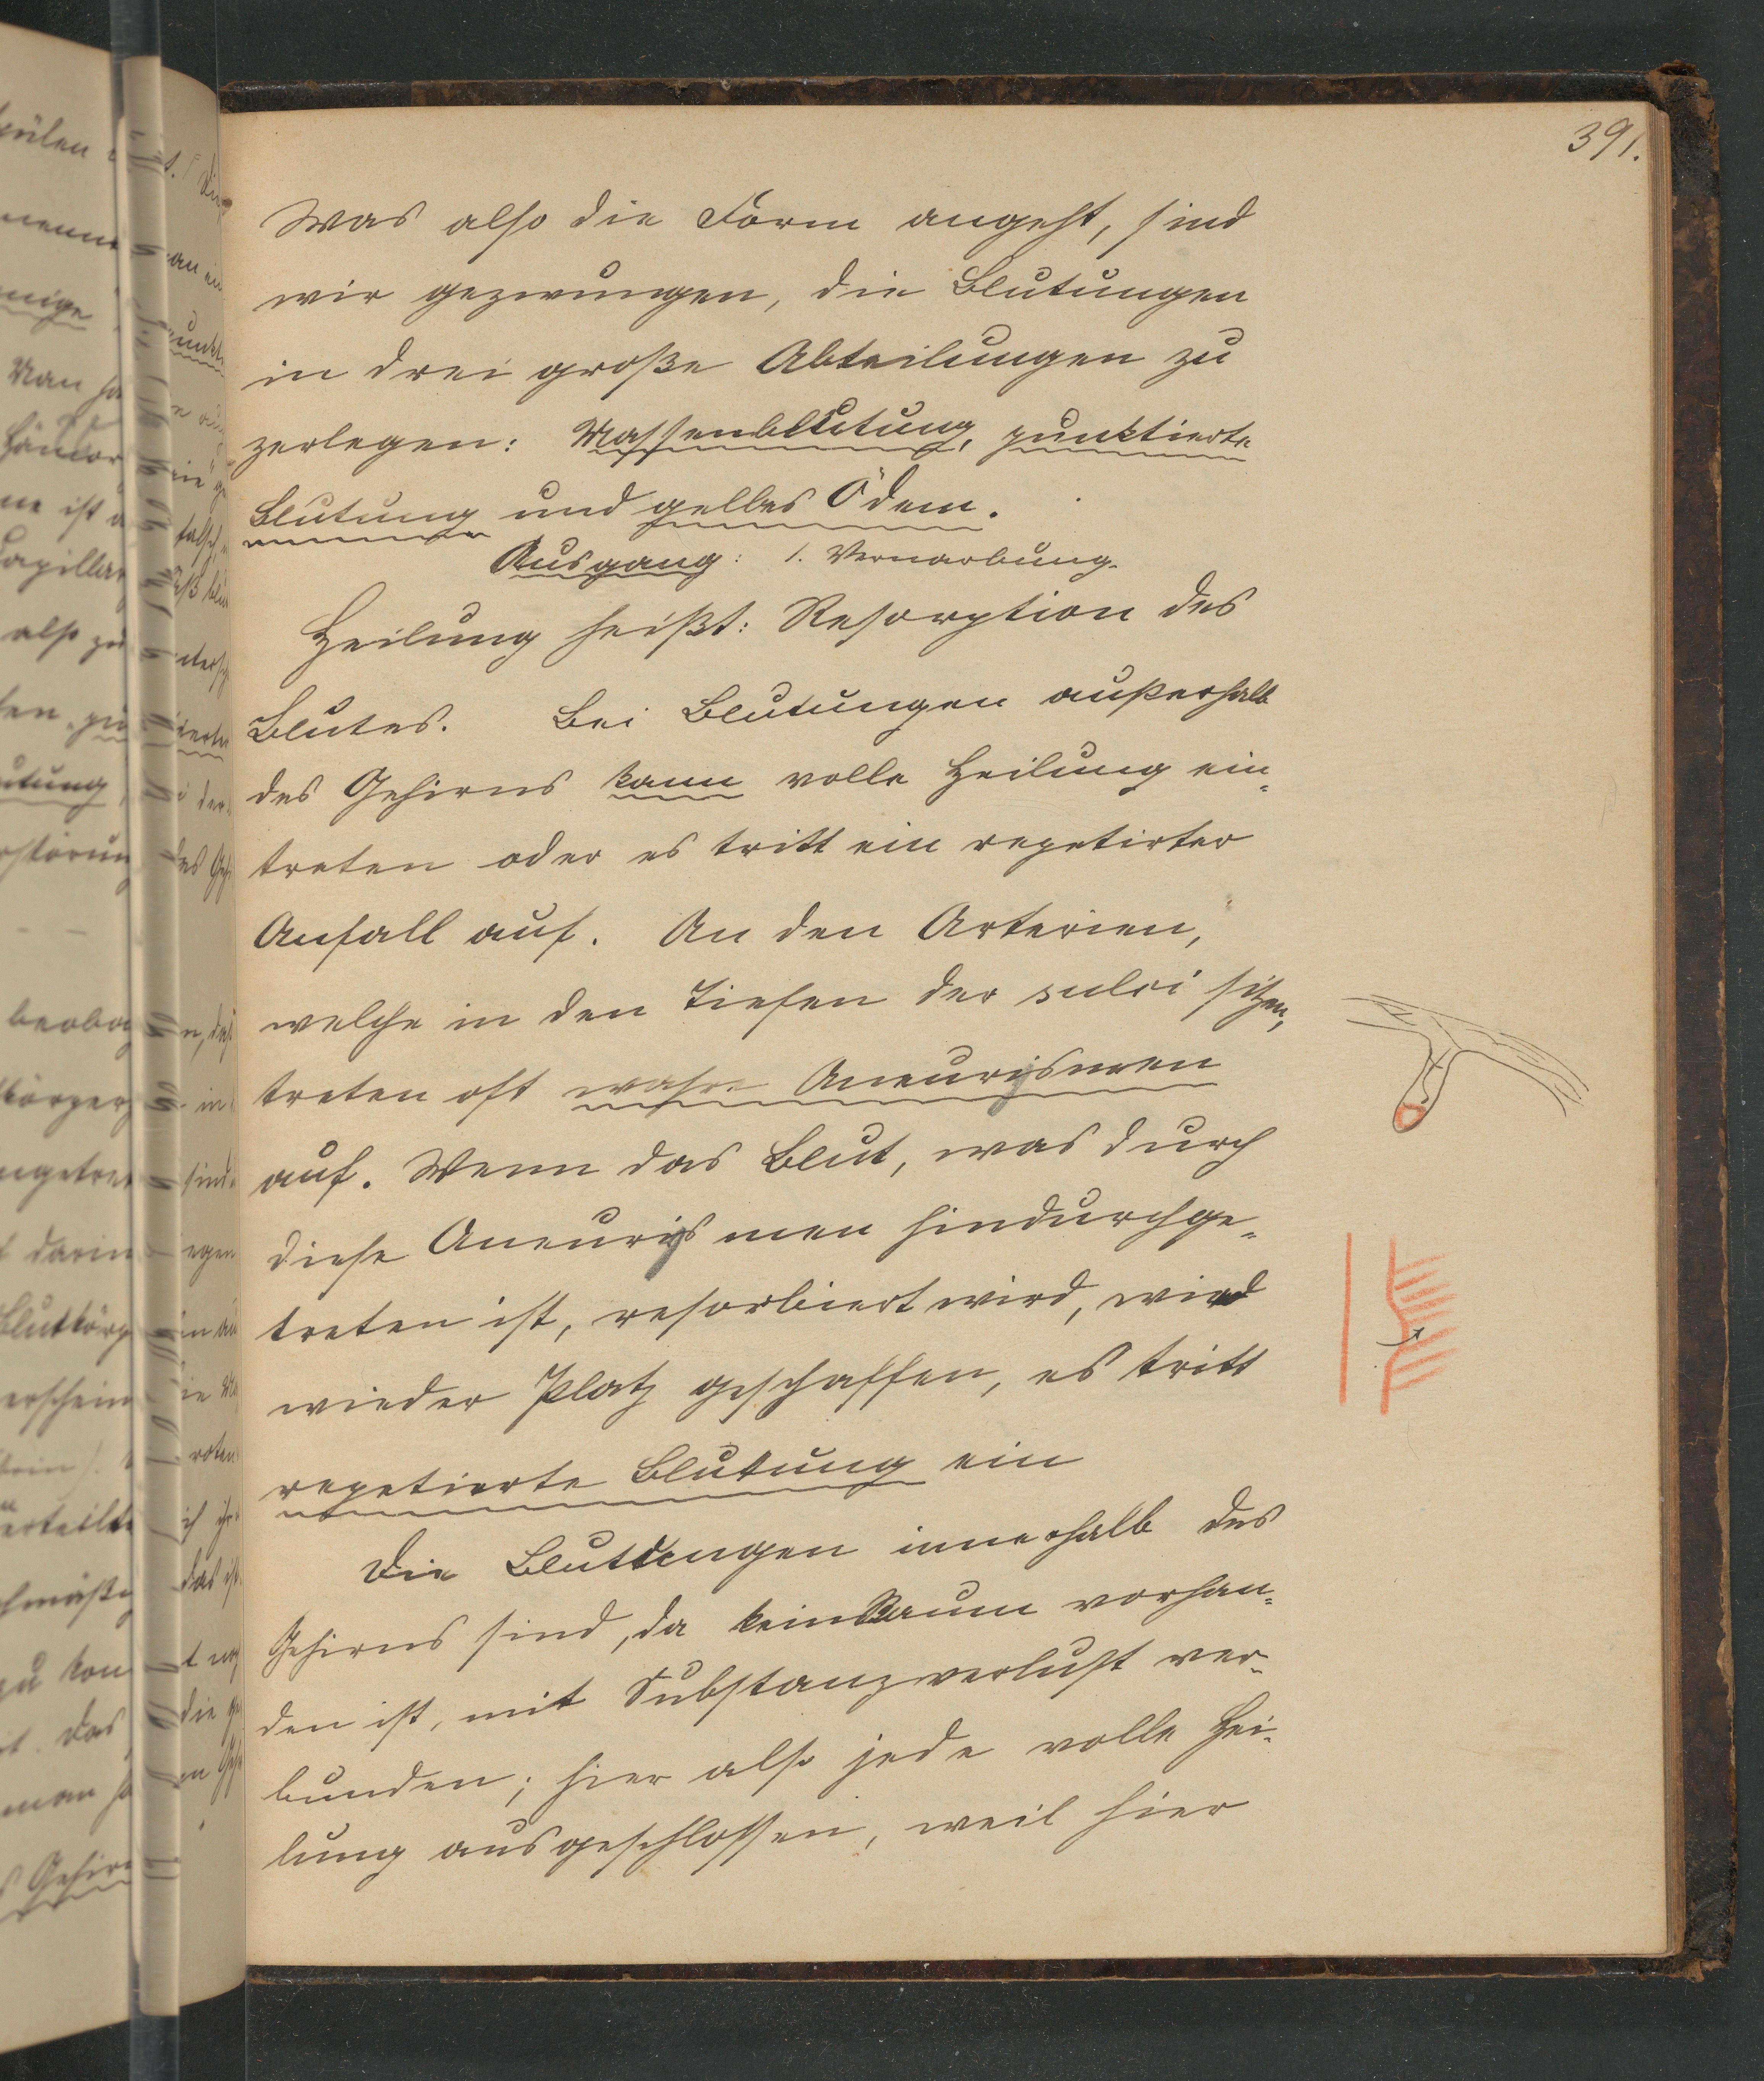 391.
Was also die Form angeht, sind
wir gezwungen, die Blutungen
in drei große Abteilungen zu
zerlegen: Massenblutung, punktierte
Blutung und gelbes Ödem.
Ausgang: 1. Vernarbung.
Heilung heißt: Resorption des
Blutes. Bei Blutungen außerhalb
des Gehirns kann volle Heilung ein-
treten oder es tritt ein repetirter
Anfall auf. An den Arterien,
welche in den Tiefen der sulci sitzen,
treten oft wahre Aneurysmen
auf. Wenn das Blut, was durch
diese Aneurysmen hindurchge-
treten ist, resorbiert wird, wird
wieder Platz geschaffen, es tritt
repetierte Blutung ein
Die Blutungen innerhalb des
Gehirns sind, da kein Raum vorhan-
den ist, mit Substanzverlust ver-
bunden; hier also jede volle Hei-
lung ausgeschlossen, weil hier